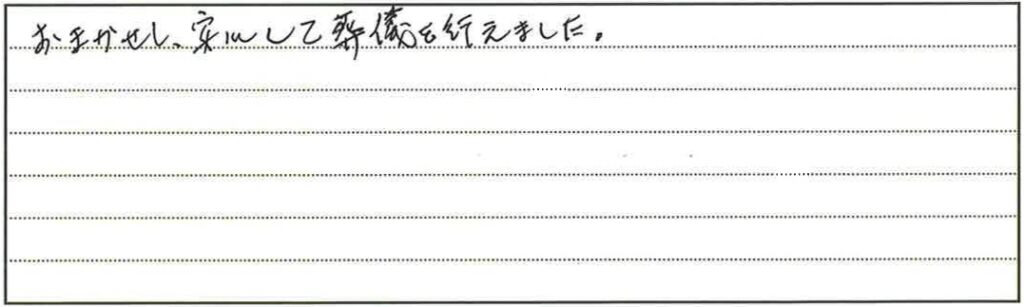 おまかせし、安心して葬儀を行えました。